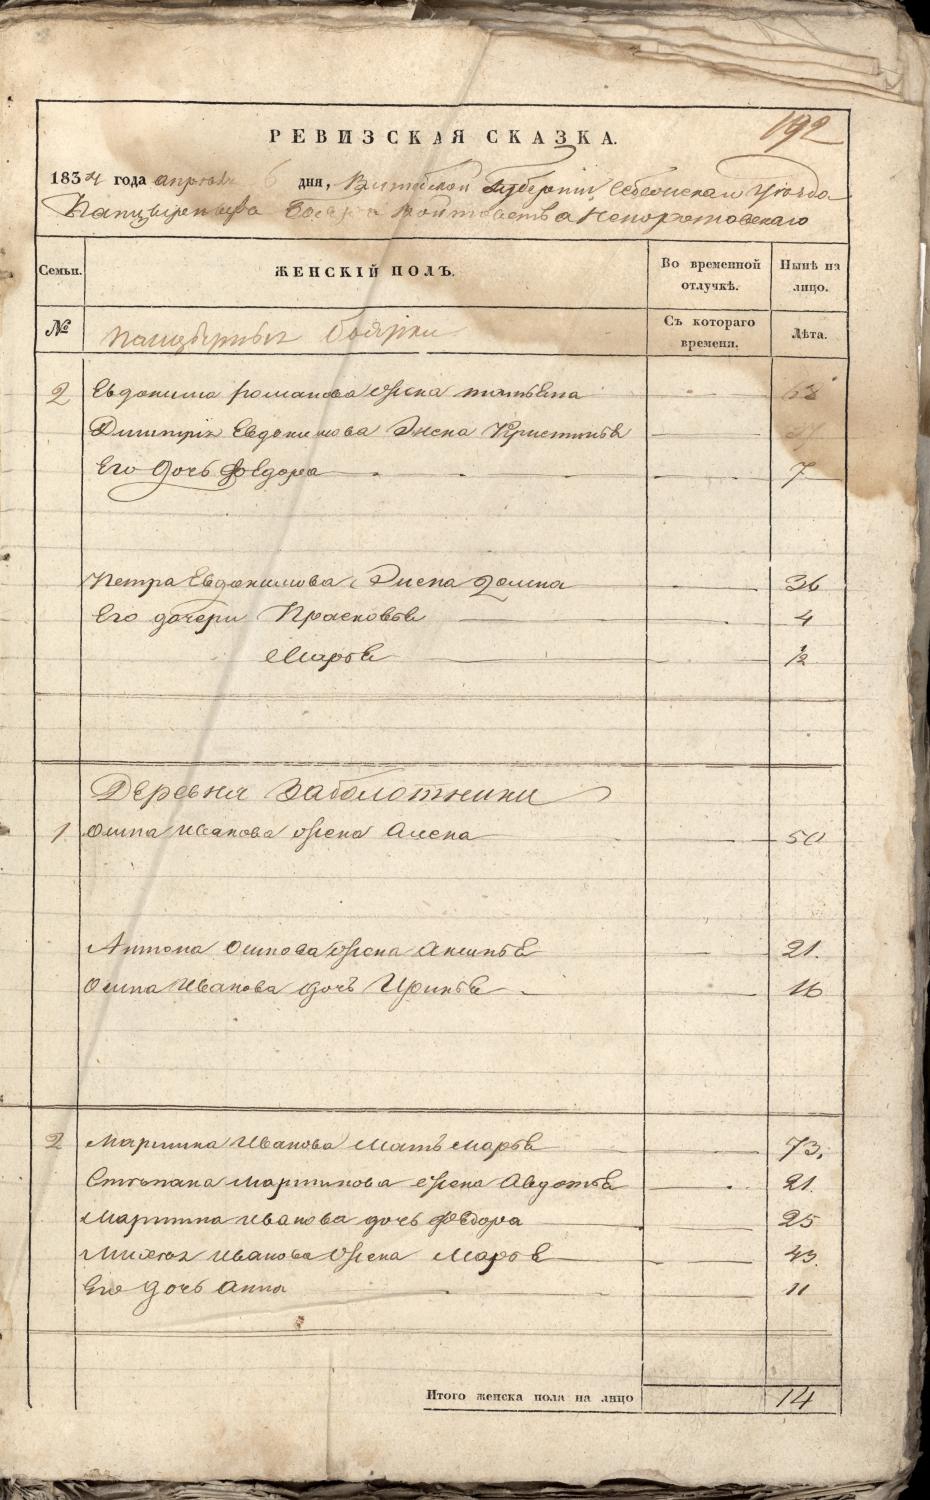 192
РЕВИЗСКАЯ СКАЗКА.
1834 года апреля 6 дня, Витебской Губернии Себежскаго Уезда
Панцырныхъ Бояръ Войтовства Непоротовскаго
Семьи. ЖЕНСКІЙ ПОЛЪ. Во временной отлучкѣ. Нынѣ на лицо.
№ Панцырныя боярки Съ котораго времени. Лѣта.
2 Евдокима романова жена татьяна
Дмитрія Евдокимова Жена Кристинья
Его Дочь Федора 7
Петра Евдокимова Жена Домна 36
Его дочери Прасковья 4
Марья ½
Деревня Заболотники
1 Осипа Иванова жена Алена 50
Антона Осипова жена Аксинья 21.
Осипа Иванова дочь Иринья 16
2 Мартина Иванова Мать марья 73.
Степана Мартинова жена Авдотья 21.
Мартина иванова дочь Федора 25
Иванова жена Марья 43.
Его Дочь Анна 11
Итого женска пола на лицо 14